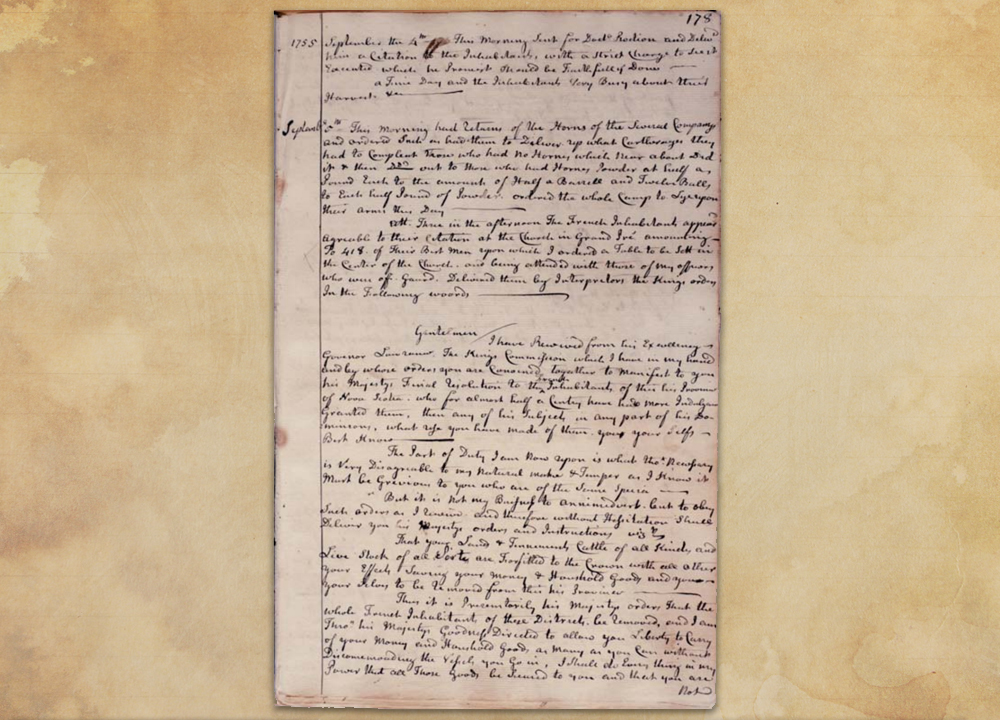 178
1755 September the 4th This Morning Sent for Doct Rodion and Deliv'd
him a Citation to the Inhabitants, with a Strict Charge to See it
Executed which he Promist Should be Faithfully Done
a Fine Day and the Inhabitants Very Busy about their
Harvest &c
September 5th This Morning had Returns of the Horns of the Several Companys
and ordered Such as had them to Deliver up what Cartheridges they
had to Compleat those who had No Hornes which Near about Did
it & then DD out to those who had Hornes Powder at half a
Pound Each to the amount of Half a Barrell and Twelve Balls
to Each half Pound of Powder. ordered the whole Camp to Lye upon
their Arms this Day
att Three in the afternoon The French Inhabitants appear'd
agreable to their Citation at the Church in Grand Pré amounting
To 418 of Their Best Men upon which I ordered a Table to be Sett in
the Center of the Church. and being attended with those of my officers
who were off Gaurd. Delivered them by Interpretors the Kings orders
In the Following woords
Gentlemen
I have Received from his Excellency
Govenor Lawrance. The Kings Commission which I have in my hand
and by whose orders you are Convened together to Manifest to you
his Majestys Final resolution to the Inhabitants of this his Province
of Nova Scotia. who for almost half a Centry have had more Indulgence
Granted them, then any of his Subjects in any part of his Do-
minions, what use you have made of them. you your Self
Best Know
The Part of Duty I am Now upon is what tho' Necessary
is Very Disagreable to my Natural make & Temper as I Know it
Must be Grevious to you who are of the Same Specia
But it is Not my Buisness to annimedvert. but to obey
Such orders as I receive and therefore without Hessitation Shall
Deliver you his Majestys orders and Instructions vizt
That your Lands & Tennements Cattle of all Kinds and
Live Stock of all Sorts are Forfitted to the Crown with all other
your Effects Saving your Money & Houshold Goods and you
your Selves to be removed from this his Province
Thus it is Preremtorily his Majestys orders That the
whole French Inhabitants of these Districts be removed, and I am
Thro' his Majestys Goodness Directed to allow you Liberty to Carry
of your Money and Houshold Goods as Many as you Can without
Discomemoading the Vessels you Go in. I Shall do Every thing in my
Power that all Those Goods be Secured to you and that you are
Not